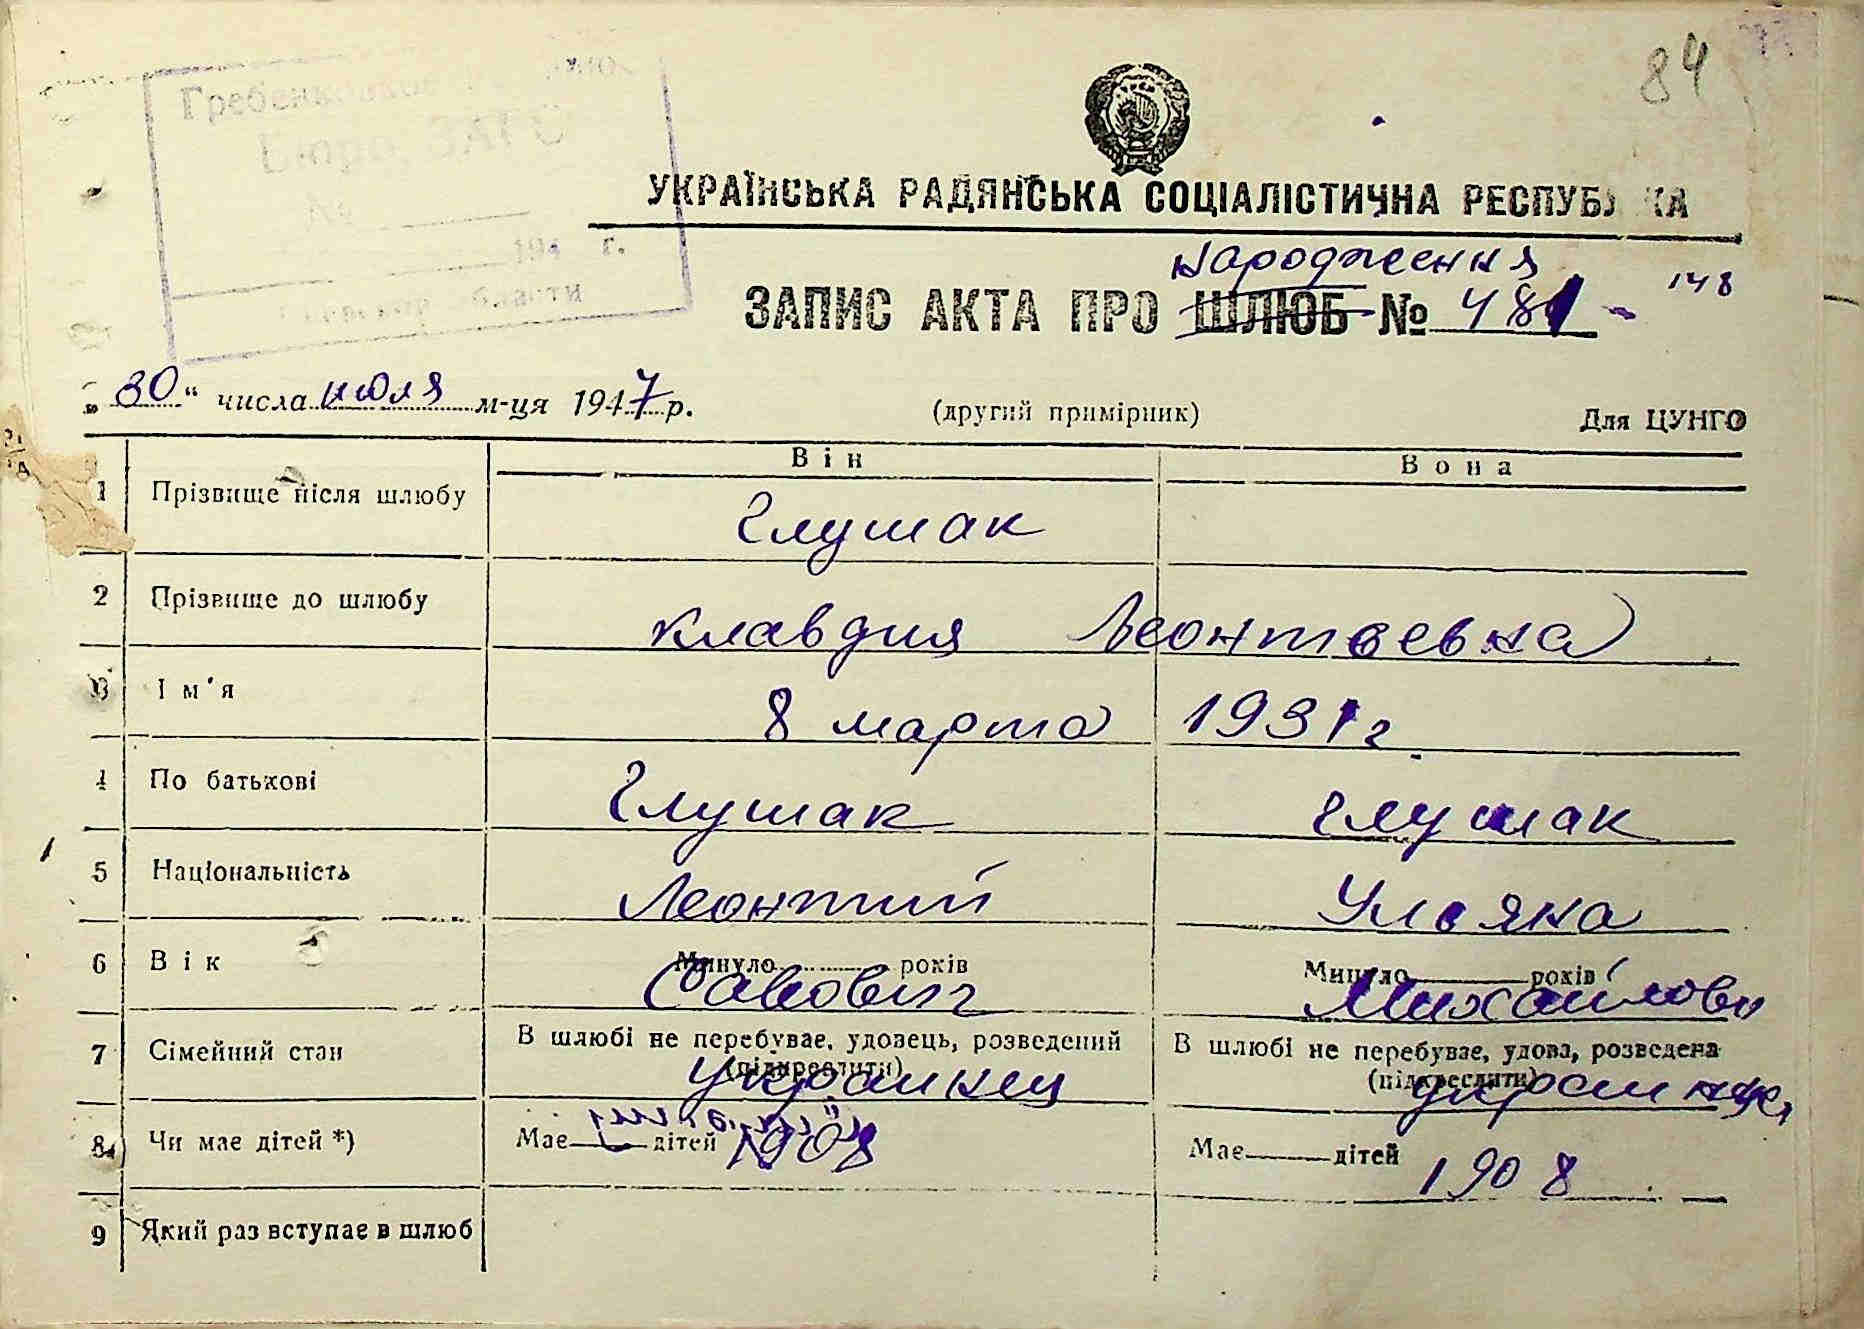 84
Бюро ЗАГС
№
194 г.
области
УКРАЇНСЬКА РАДЯНСЬКА СОЦІАЛІСТИЧНА РЕСПУБЛІКА
народження
ЗАПИС АКТА ПРО ШЛЮБ № 481 - 148
„30“ числа июля м-ця 1947 р. (другий примірник) Для ЦУНГО
Він Вона
1 Прізвище після шлюбу Глушак
2 Прізвище до шлюбу Клавдия Леонтьевна
3 Ім'я 8 марта 1931 г.
4 По батькові Глушак Глушак
5 Національність Леонтий Ульяна
6 Вік Минуло років Савович Минуло років Михайловн
7 Сімейний стан В шлюбі не перебуває, удовець, розведений (підкреслити) украинец В шлюбі не перебуває, удова, розведена (підкреслити) украинка
8 Чи має дітей *) Має дітей 1908 Має дітей 1908
9 Який раз вступає в шлюб